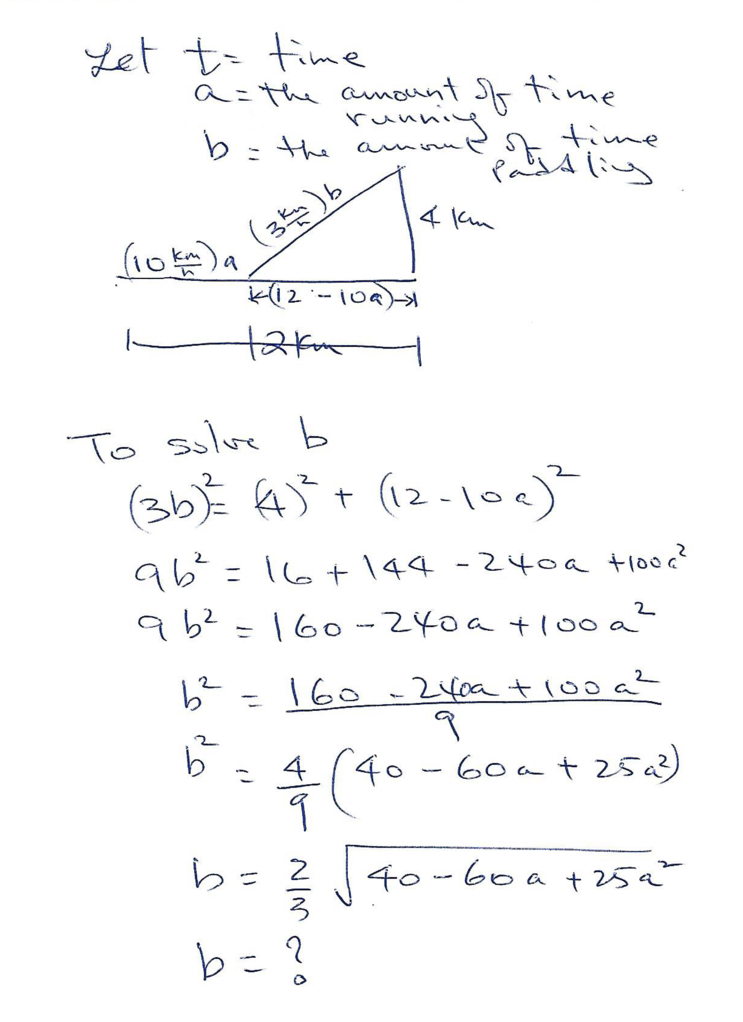 Let t = time
a = the amount of time
running
b = the amount of time
paddling
(3 km/h)b
4 km
(10 km/h)a
(12 - 10a)
12km
To solve b
(3b)² = (4)² + (12 - 10a)²
9b² = 16 + 144 - 240a + 100a²
9b² = 160 - 240a + 100a²
b² = 160 - 240a + 100a² / 9
b² = 4/9 (40 - 60a + 25a²)
b = 2/3 √40 - 60a + 25a²
b = ?